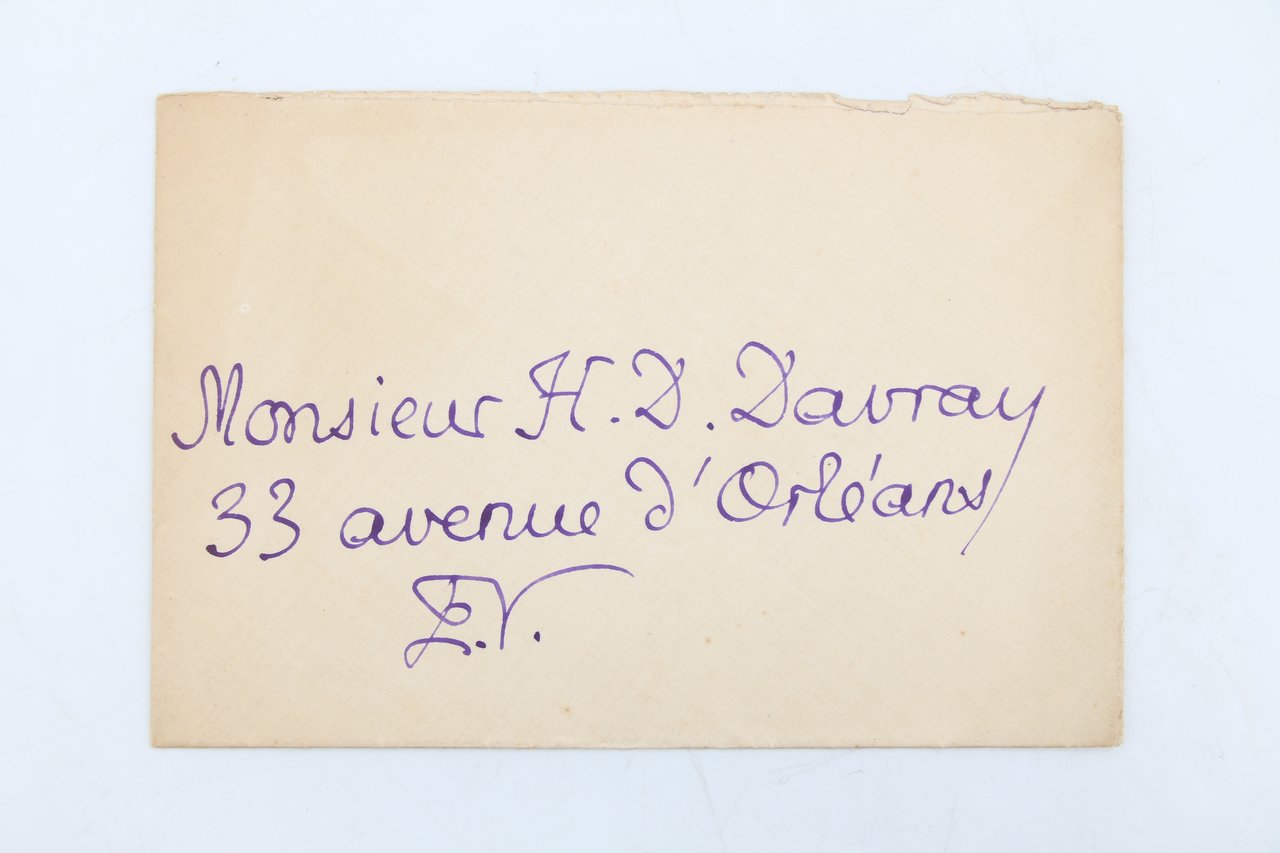 Monsieur H. D. Davray
33 avenue d'Orléans
E.V.